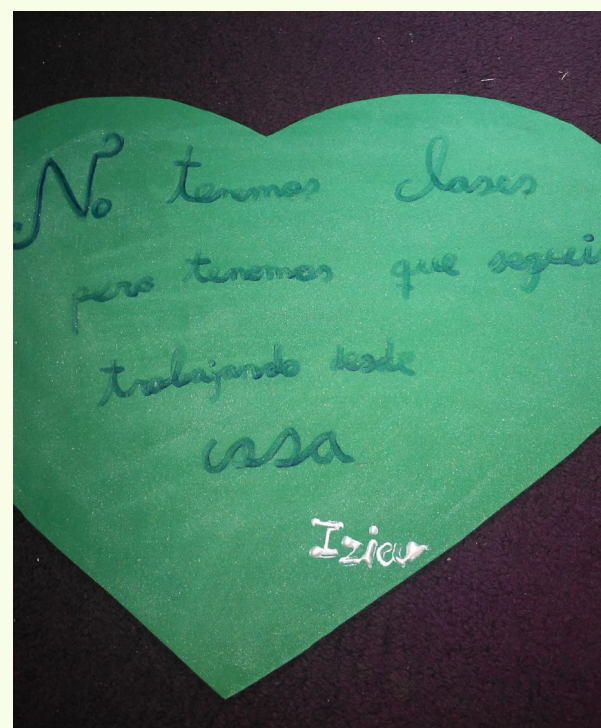 No tenemos clases
pero tenemos que seguir
trabajando desde
casa
Iziar